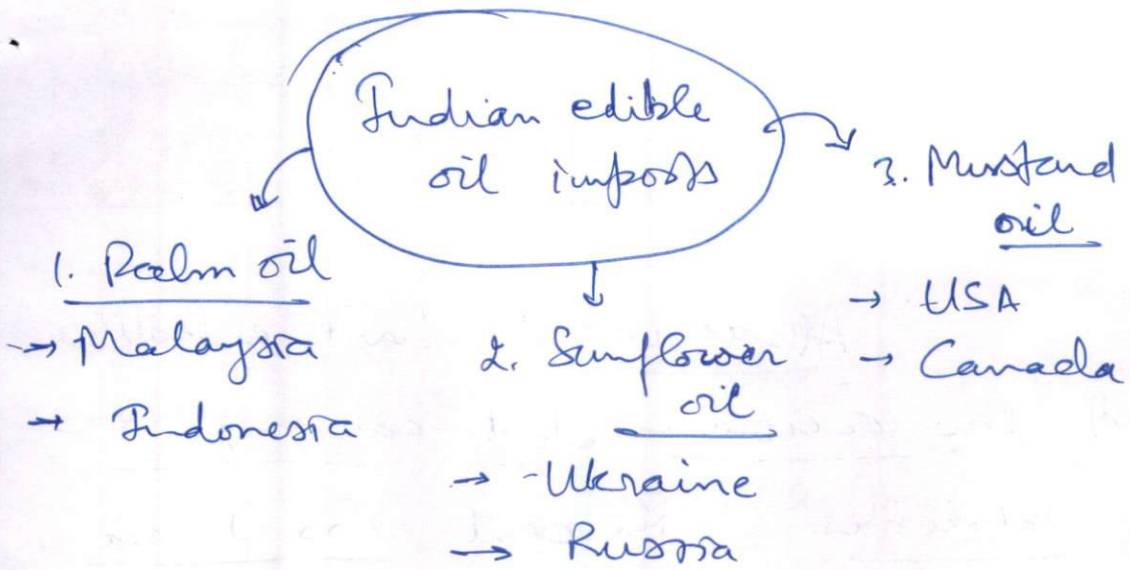 Indian edible
oil imports
1. Palm oil
→ Malaysia
→ Indonesia
2. Sunflower
oil
→ Ukraine
→ Russia
3. Mustard
oil
→ USA
→ Canada